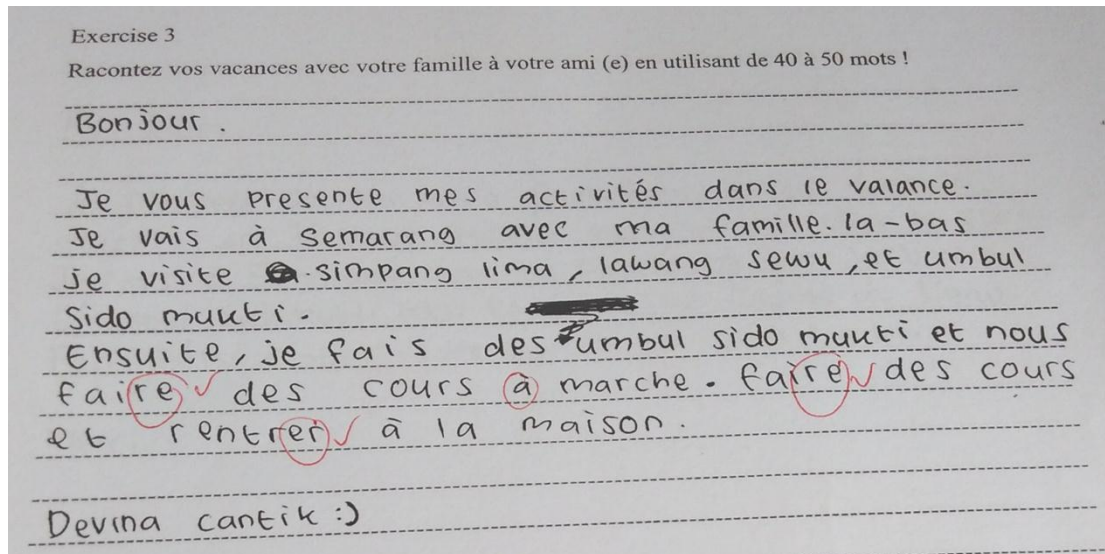 Exercise 3
Racontez vos vacances avec votre famille à votre ami (e) en utilisant de 40 à 50 mots !
Bonjour.
Je vous presente mes activités dans le valance.
Je vais à semarang avec ma famille. la-bas
je visite simpang lima, lawang sewu, et umbul
Sido mukti.
Ensuite, je fais des umbul sido mukti et nous
faire des cours à marche. faire des cours
et rentrer à la maison.
Devina cantik :)